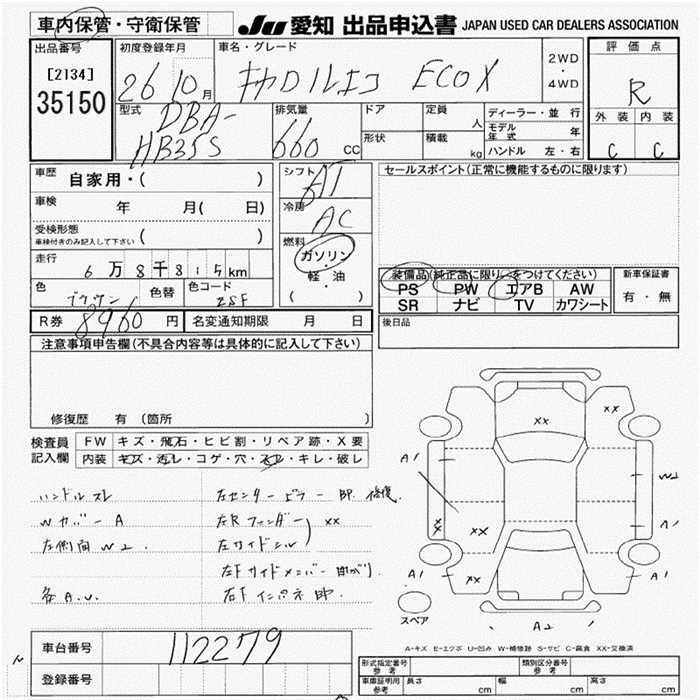 車内保管・守衛保管
JU 愛知 出品申込書 JAPAN USED CAR DEALERS ASSOCIATION
出品番号
[2134]
35150
初度登録年月
26 10月
車名・グレード
キャロルエコ ECO X
2WD
・
4WD
評価点
R
外装 内装
C C
型式
DBA-
HB35S
排気量
660 CC
ドア
形状
定員
人
積載
kg
ディーラー・並行
モデル年式 年
ハンドル 左・右
車歴 自家用・( )
車検 年 月( 日)
受検形態
車検付きのみ記入して下さい ( )
走行 6万8千815km
色 ブラウン 色替 色コード ZSF
シフト AT
冷房 AC
燃料
ガソリン
・
軽・油
( )
セールスポイント(正常に機能するものに限ります)
装備品(純正品に限り○をつけてください)
PS PW エアB AW
SR ナビ TV カワシート
新車保証書
有・無
R券 8960円 名変通知期限 月 日
後日品
注意事項申告欄(不具合内容等は具体的に記入して下さい)
修復歴 有 (箇所
検査員
記入欄
FW キズ・飛石・ヒビ割・リペア跡・X要
内装 キズ・汚レ・コゲ・穴・スレ・キレ・破レ
ハンドルスレ
Wカバー A
左側面 W2.
各A.U.
左センターピラー 即 修復.
左Rフェンダー
左サイドシル
XX
左F サイドメンバー 曲がり
右F インパネ 即.
XX
XX
A1
W2
XX
XX
A1
A1
XX
A1
A2
スペア
A-キズ E-エクボ U-凹み W-補修跡 S-サビ C-腐食 XX-交換済
車台番号 112279
登録番号
形式指定番号
参考
類別区分番号
参考
車庫証明用
参考
長さ cm 幅 cm 高さ cm